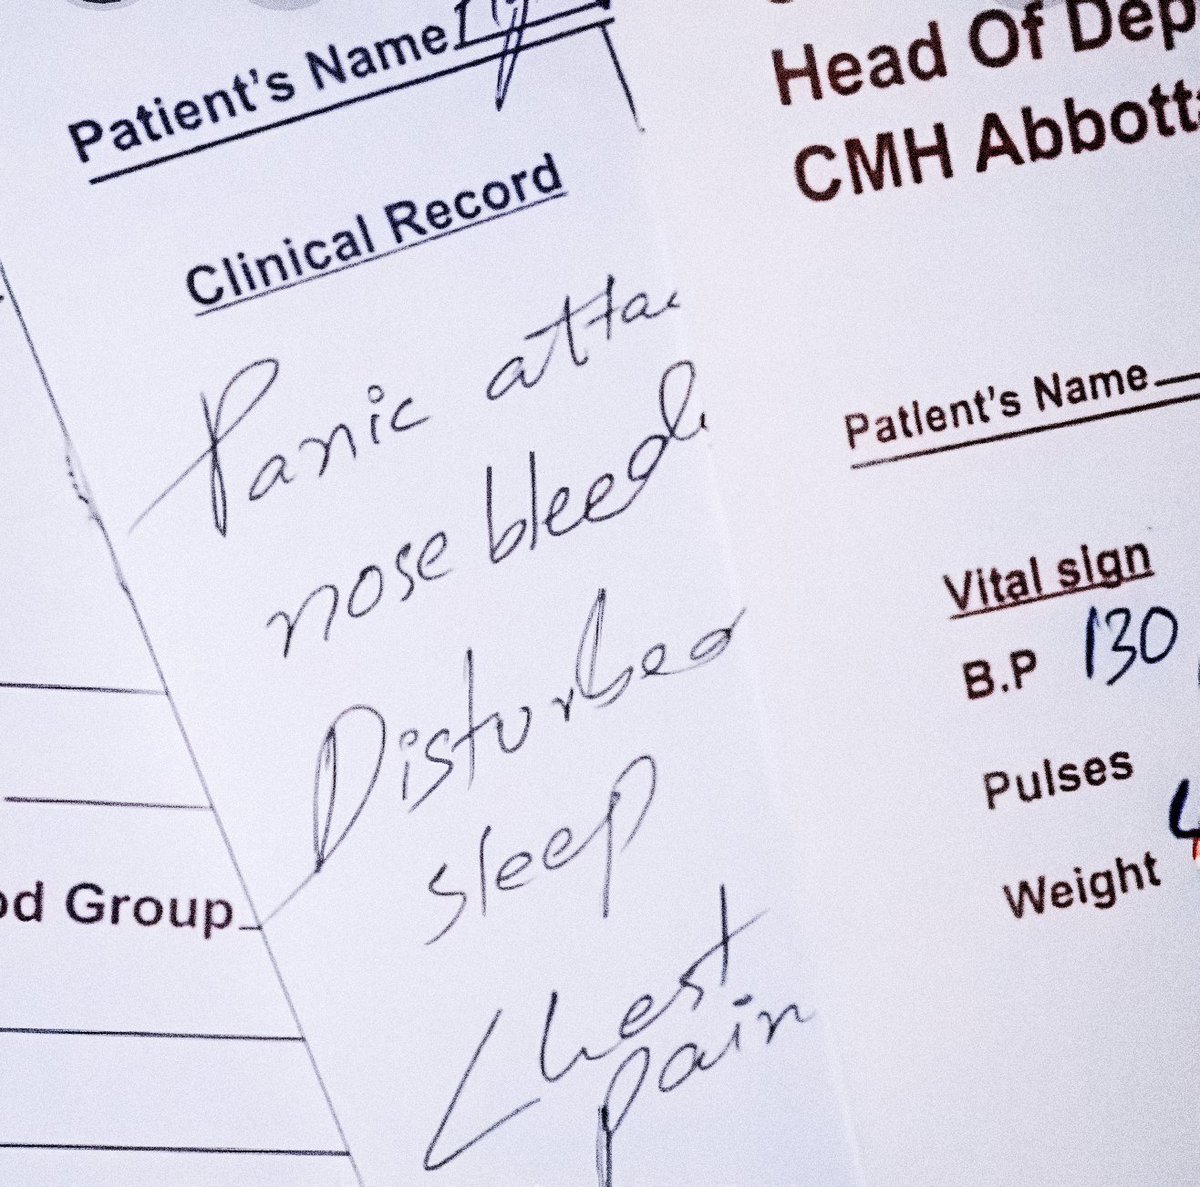 Patient's Name
Clinical Record
Panic atta
nose bleed
Disturbed
sleep
Chest
pain
od Group
Head Of Dep
CMH Abbotta
Patient's Name
Vital sign
B.P 130
Pulses
Weight